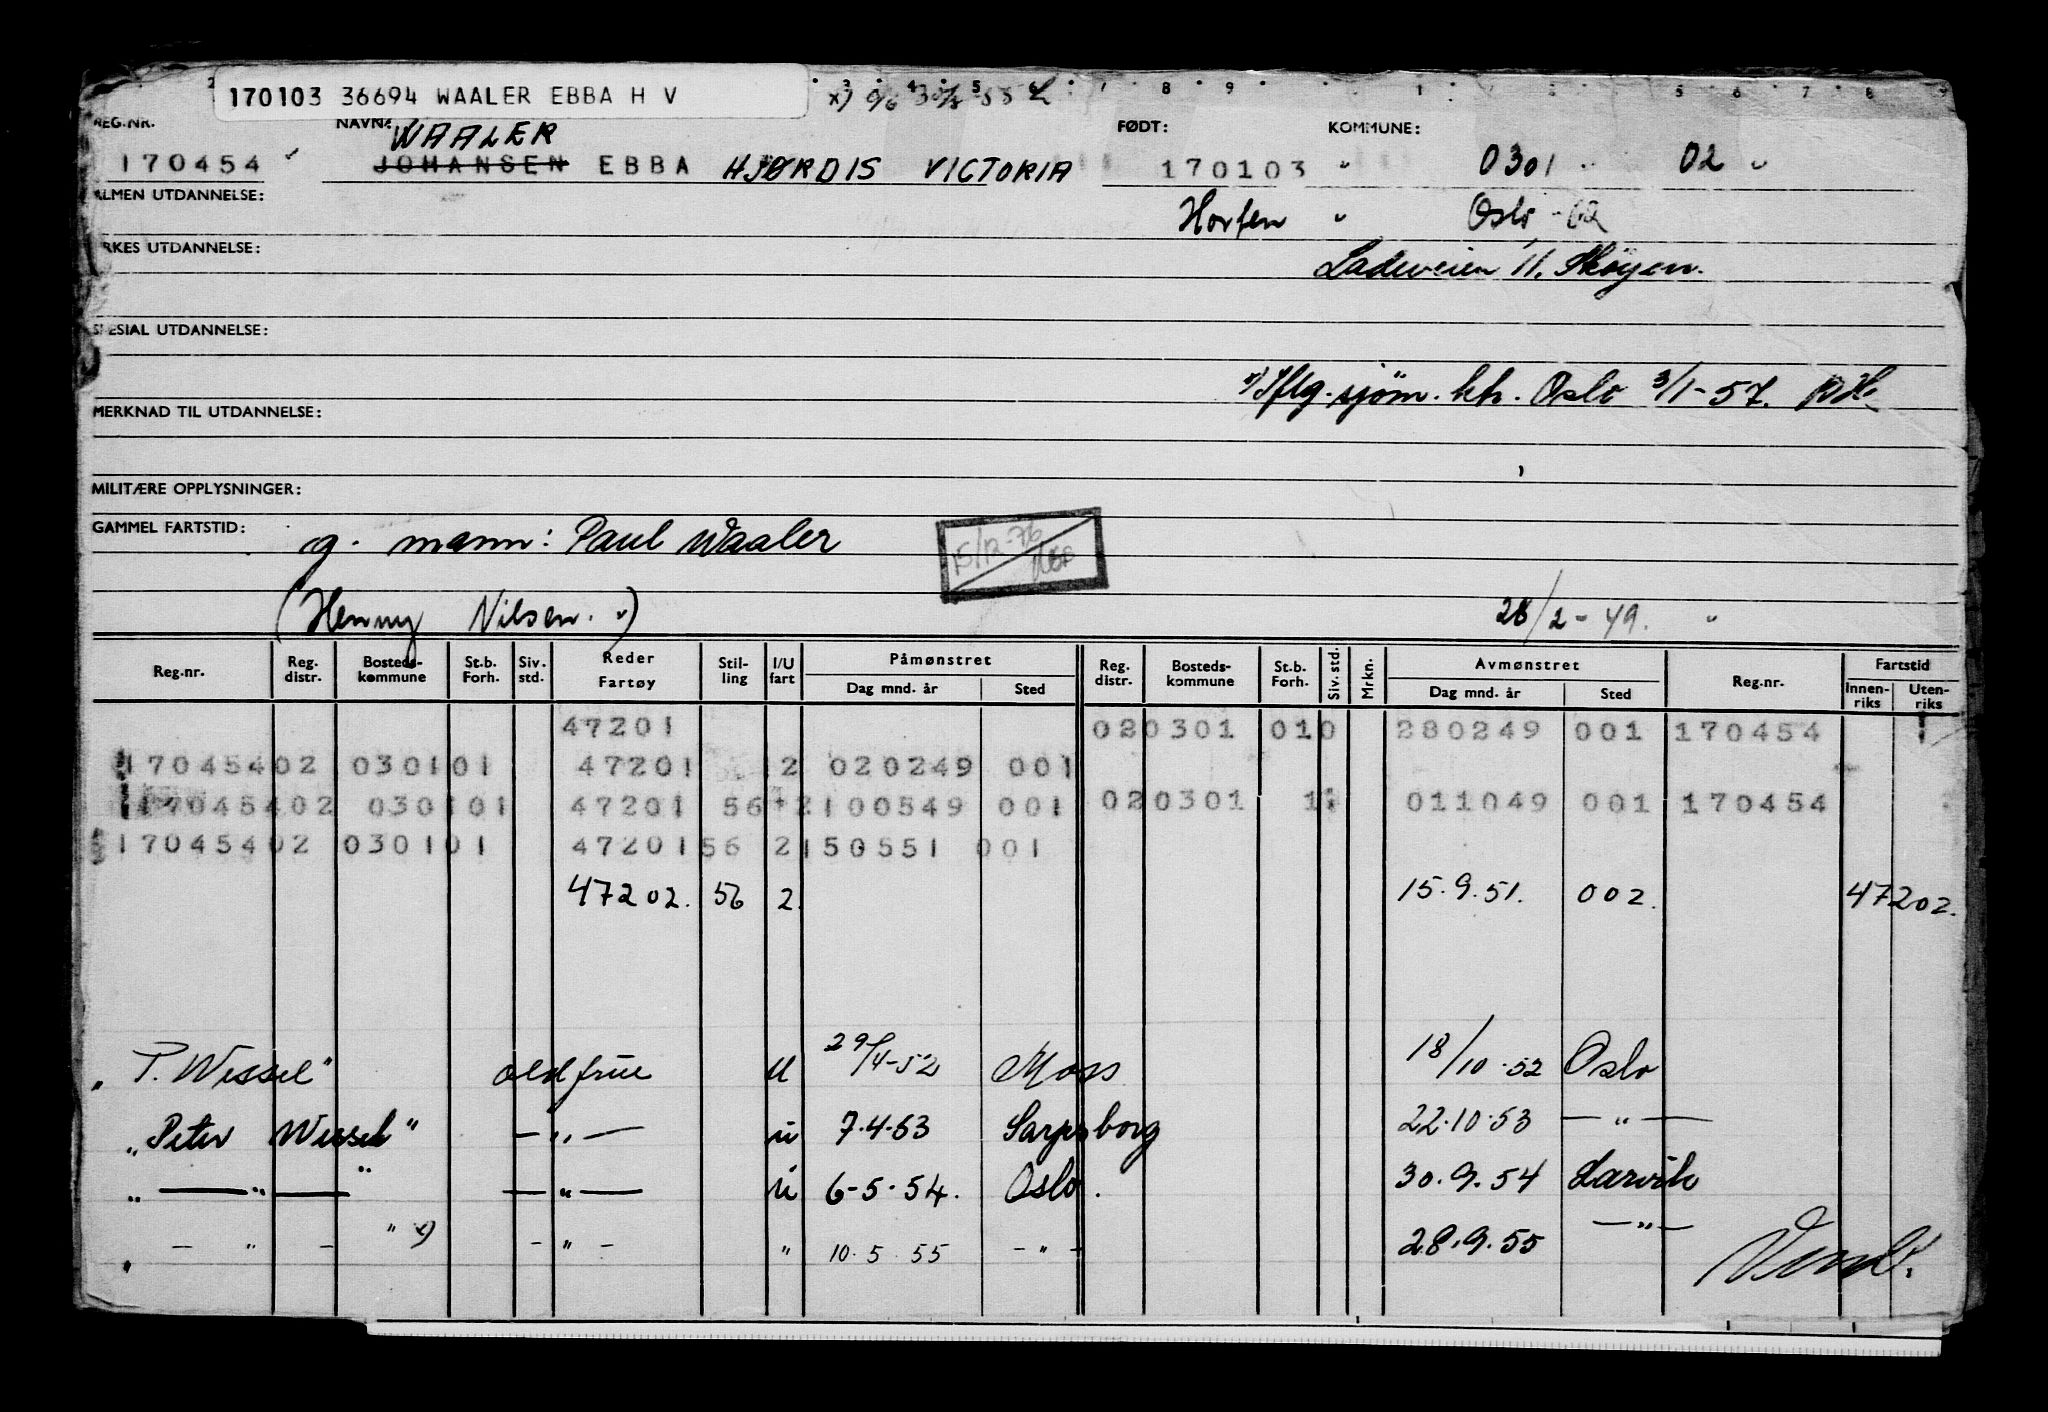 170103 36694 WAALER EBBA H V
REG.NR. NAVN: FØDT: KOMMUNE:
WAALER
170454 JOHANSEN EBBA HJØRDIS VICTORIA 170103 0301 02
ALMEN UTDANNELSE: Horten Oslo - 02
YRKES UTDANNELSE: Ladeveien 11. Skøyen.
SPESIAL UTDANNELSE:
x) Iflg. sjøm. kh. Oslo 3/1-57.
MERKNAD TIL UTDANNELSE:
MILITÆRE OPPLYSNINGER:
GAMMEL FARTSTID: g. mann: Paul Waaler 15/12-76
(Henny Nilsen.) 28/2-49.
Reg.nr. Reg. distr. Bosteds-kommune St.b. Forh. Siv. std. Reder Fartøy Stil-ling I/U fart Påmønstret Dag mnd. år Sted Reg. distr. Bosteds-kommune St.b. Forh. Siv. std. Mrkn. Avmønstret Dag mnd. år Sted Reg.nr. Fartstid Innen-riks Uten-riks
47201 020301 010 280249 001 170454
17045402 030101 47201 2 020249 001
17045402 030101 47201 56 2100549 001 020301 011049 001 170454
17045402 030101 4720156 2150551 001
47202. 56 2. 15.9.51. 002. 47202.
"P. Wessel" oldfrue U 29/4-52 Moss 18/10.52 Oslo
"Peter Wessel" — " — u 7.4.53 Sarpsborg 22.10.53 — " —
" — " — " — " — u 6-5.54. Oslo. 30.9.54 Larvik
" — " — " x) — " — " 10.5.55 — " — 28.9.55 — " —
Vend!